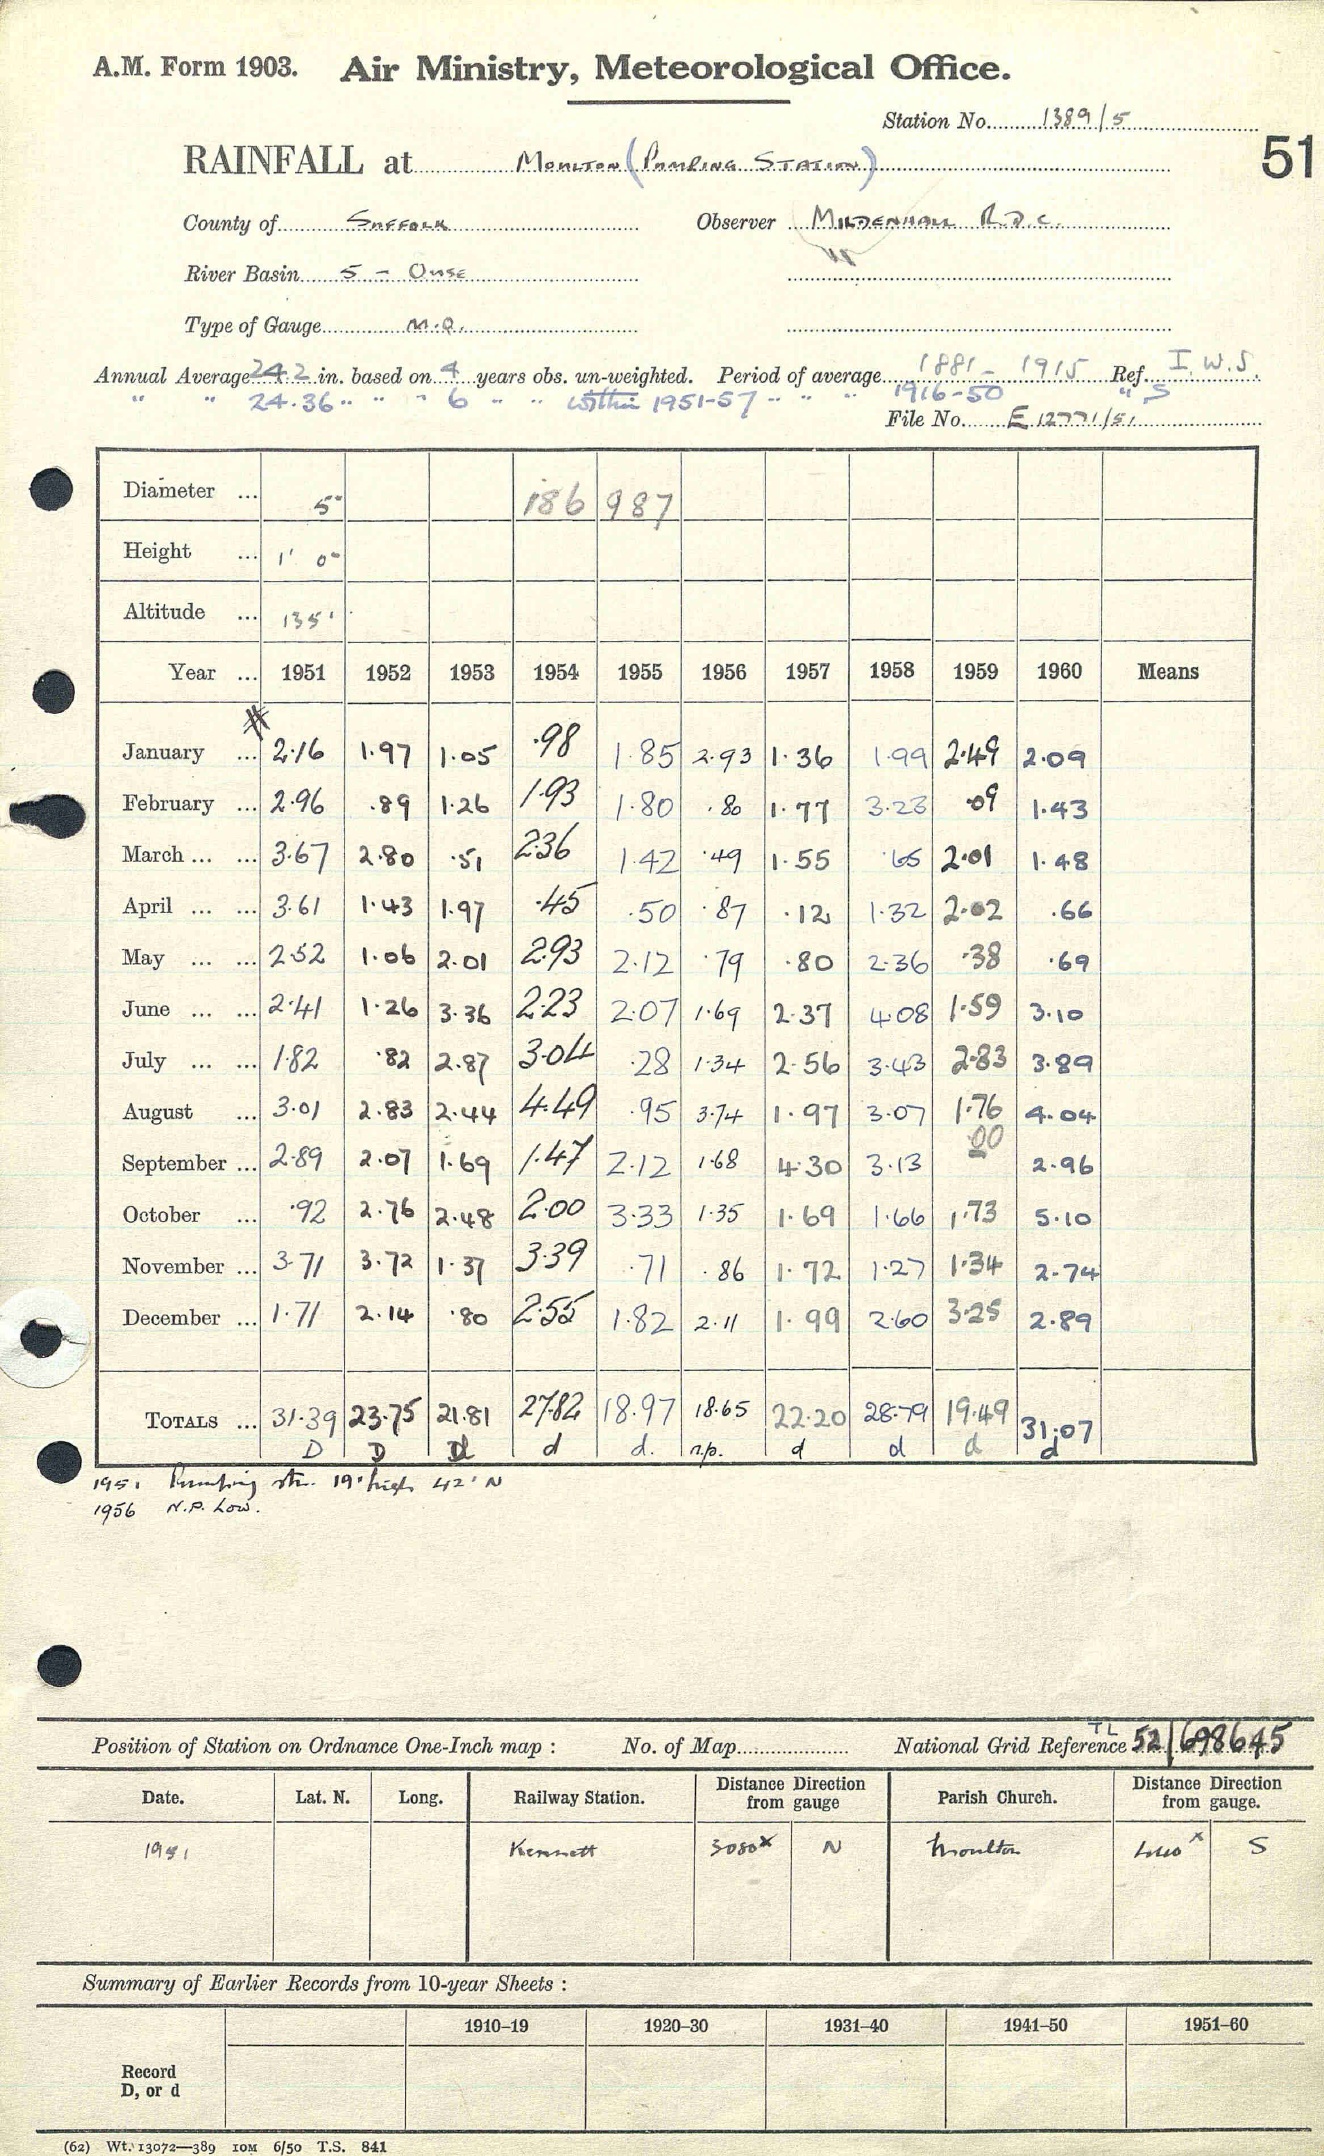 A.M. Form 1903. Air Ministry, Meteorological Office.
Station No. 1389/5
RAINFALL at Moulton (Pumping Station)
51
County of Suffolk Observer Mildenhall R.D.C.
River Basin 5 - Ouse
Type of Gauge M.O.
Annual Average 24.2 in. based on 4 years obs. un-weighted. Period of average 1881 - 1915 Ref. I.W.S.
" " 24.36 " " " 6 " " within 1951-57 " " " 1916-50 " S
File No. E 12771/51
Diameter ... 5" 186 987
Height ... 1' 0"
Altitude ... 135'
Year ... 1951 1952 1953 1954 1955 1956 1957 1958 1959 1960 Means
January ... 2.16 1.97 1.05 .98 1.85 2.93 1.36 1.99 2.49 2.09
February ... 2.96 .89 1.26 1.93 1.80 .80 1.77 3.23 .09 1.43
March ... ... 3.67 2.80 .51 2.36 1.42 .49 1.55 .65 2.01 1.48
April ... ... 3.61 1.43 1.97 .45 .50 .87 .12 1.32 2.02 .66
May ... ... 2.52 1.06 2.01 2.93 2.12 .79 .80 2.36 .38 .69
June ... ... 2.41 1.26 3.36 2.23 2.07 1.69 2.37 4.08 1.59 3.10
July ... ... 1.82 .82 2.87 3.04 .28 1.34 2.56 3.43 2.83 3.89
August ... 3.01 2.83 2.44 4.49 .95 3.74 1.97 3.07 1.76 4.04
September ... 2.89 2.07 1.69 1.47 2.12 1.68 4.30 3.13 .00 2.96
October ... .92 2.76 2.48 2.00 3.33 1.35 1.69 1.66 1.73 5.10
November ... 3.71 3.72 1.37 3.39 .71 .86 1.72 1.27 1.34 2.74
December ... 1.71 2.14 .80 2.55 1.82 2.11 1.99 2.60 3.25 2.89
Totals ... 31.39 23.75 21.81 27.82 18.97 18.65 22.20 28.79 19.49 31.07
D D d d d. n.p. d d d d
1951 Pumping stn. 19' high 42' N
1956 N.P. Low.
Position of Station on Ordnance One-Inch map : No. of Map National Grid Reference TL 52/698645
Date. Lat. N. Long. Railway Station. Distance Direction from gauge Parish Church. Distance Direction from gauge.
1951 Kennett 3080x N Moulton S
Summary of Earlier Records from 10-year Sheets :
1910–19 1920–30 1931–40 1941–50 1951–60
Record
D, or d
(62) Wt. 13072—389 10M 6/50 T.S. 841